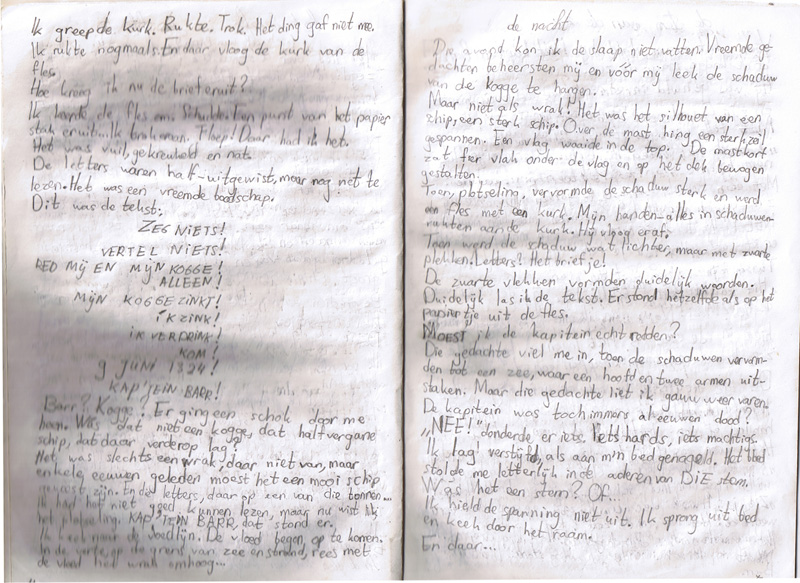 Ik greep de kurk. Rukte. Trok. Het ding gaf niet mee.
Ik rukte nogmaals. En daar vloog de kurk van de
fles.
Hoe kreeg ik nu de brief eruit?
Ik keerde de fles om. Schudde. Een punt van het papier
stak eruit... Ik trok eraan. Floep! Daar had ik het.
Het was vuil, gekreukeld en nat.
De letters waren half-uitgewist, maar nog net te
lezen. Het was een vreemde boodschap.
Dit was de tekst:
ZEG NIETS!
VERTEL NIETS!
RED MIJ EN MIJN KOGGE!
ALLEEN!
MIJN KOGGE ZINKT!
IK ZINK!
IK VERDRINK!
KOM!
9 JUNI 1324!
KAP'TEIN BARR!
Barr? Kogge? Er ging een schok door me
heen. Was dat niet een kogge, dat halfvergane
schip, dat daar verderop lag?
Het was slechts een wrak, daar niet van, maar
enkele eeuwen geleden moest het een mooi schip
geweest zijn. En de letters, daar op een van die tonnen...
Ik had het niet goed kunnen lezen, maar nu wist ik
het plotseling. KAP'TEIN BARR, dat stond er.
Ik keek naar de vloedlijn. De vloed begon op te komen.
In de verte, op de grens van zee en strand, rees met
de vloed het wrak omhoog...
de nacht
Die avond kon ik de slaap niet vatten. Vreemde ge-
dachten beheersten mij en vóór mij leek de schaduw
van de kogge te hangen.
Maar niet als wrak! Het was het silhouet van een
schip, een sterk schip. Over de mast hing een sterk zeil
gespannen. Een vlag waaide in de top. De mastkorf
zat fier vlak onder de vlag en op het dek bewogen
gestalten.
Toen, plotseling, vervormde de schaduw sterk en werd
een fles met een kurk. Mijn handen - alles in schaduwen -
rukten aan de kurk. Hij vloog eraf.
Toen werd de schaduw wat lichter, maar met zwarte
plekken. Letters! Het briefje!
De zwarte vlekken vormden duidelijk woorden.
Duidelijk las ik de tekst. Er stond hetzelfde als op het
papiertje uit de fles.
MOEST ik de kapitein echt redden?
Die gedachte viel me in, toen de schaduwen vervorm-
den tot een zee, waar een hoofd en twee armen uit-
staken. Maar die gedachte liet ik gauw weer varen.
De kapitein was toch immers al eeuwen dood?
„NEE!" donderde er iets. Iets hards, iets machtigs.
Ik lag verstijfd, als aan m'n bed genageld. Het bloed
stolde me letterlijk in de aderen van DIE stem.
Wás het een stem? Of...
Ik hield de spanning niet uit. Ik sprong uit bed
en keek door het raam.
En daar...